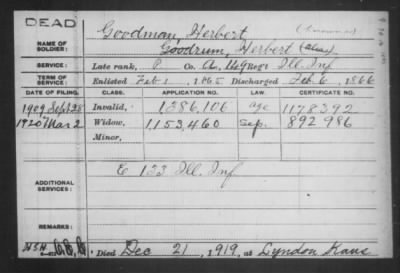 DEAD
Goodman, Herbert
NAME OF SOLDIER: Goodrum, Herbert (Alias)
SERVICE: Late rank, P Co. A, Regt Ill. Inf
TERM OF SERVICE: Enlisted Feb 1, 1865 Discharged Feb. 6, 1866
DATE OF FILING. CLASS. APPLICATION NO. LAW. CERTIFICATE NO.
1909 Sept 28 Invalid, 1,386,106 age 1178392
1920 Mar 2 Widow, 1,153,460 Sep. 892986
Minor,
ADDITIONAL SERVICES: E 133 Ill. Inf
REMARKS:
Died Dec 21, 1919, at Lyndon Kans